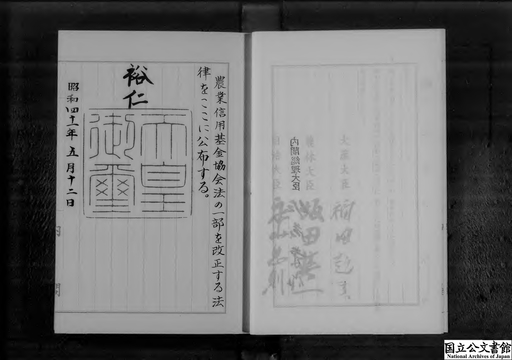 農業信用基金協会法の一部を改正する法
律をここに公布する。
裕仁
天皇
御璽
昭和四十一年五月十二日
内閣総理大臣
大蔵大臣
国立公文書館
National Archives of Japan